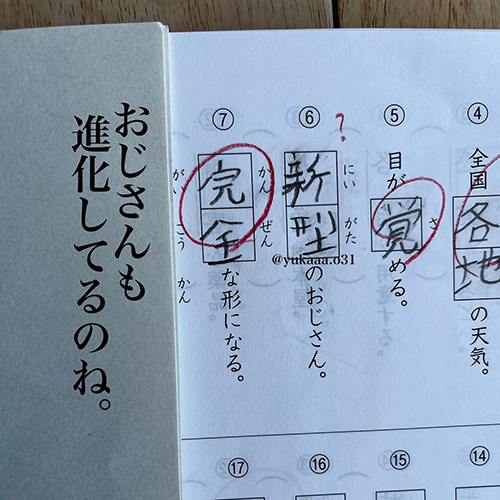 ④
全国各地の天気。
⑤
目が覚める。
さ
⑥
?
新型のおじさん。
にい
がた
⑦
完全な形になる。
かん
ぜん
がい
こう
かん
おじさんも
進化してるのね。
@yukaaa.o31
⑭
⑮
⑯
⑰